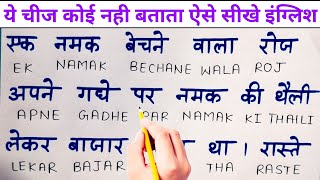 ये चीज कोई नही बताता ऐसे सीखे इंग्लिश
एक नमक बेचने वाला रोज
EK NAMAK BECHANE WALA ROJ
अपने गधे पर नमक की थैली
APNE GADHE PAR NAMAK KI THAILI
लेकर बाजार था। रास्ते
LEKAR BAJAR THA RASTE